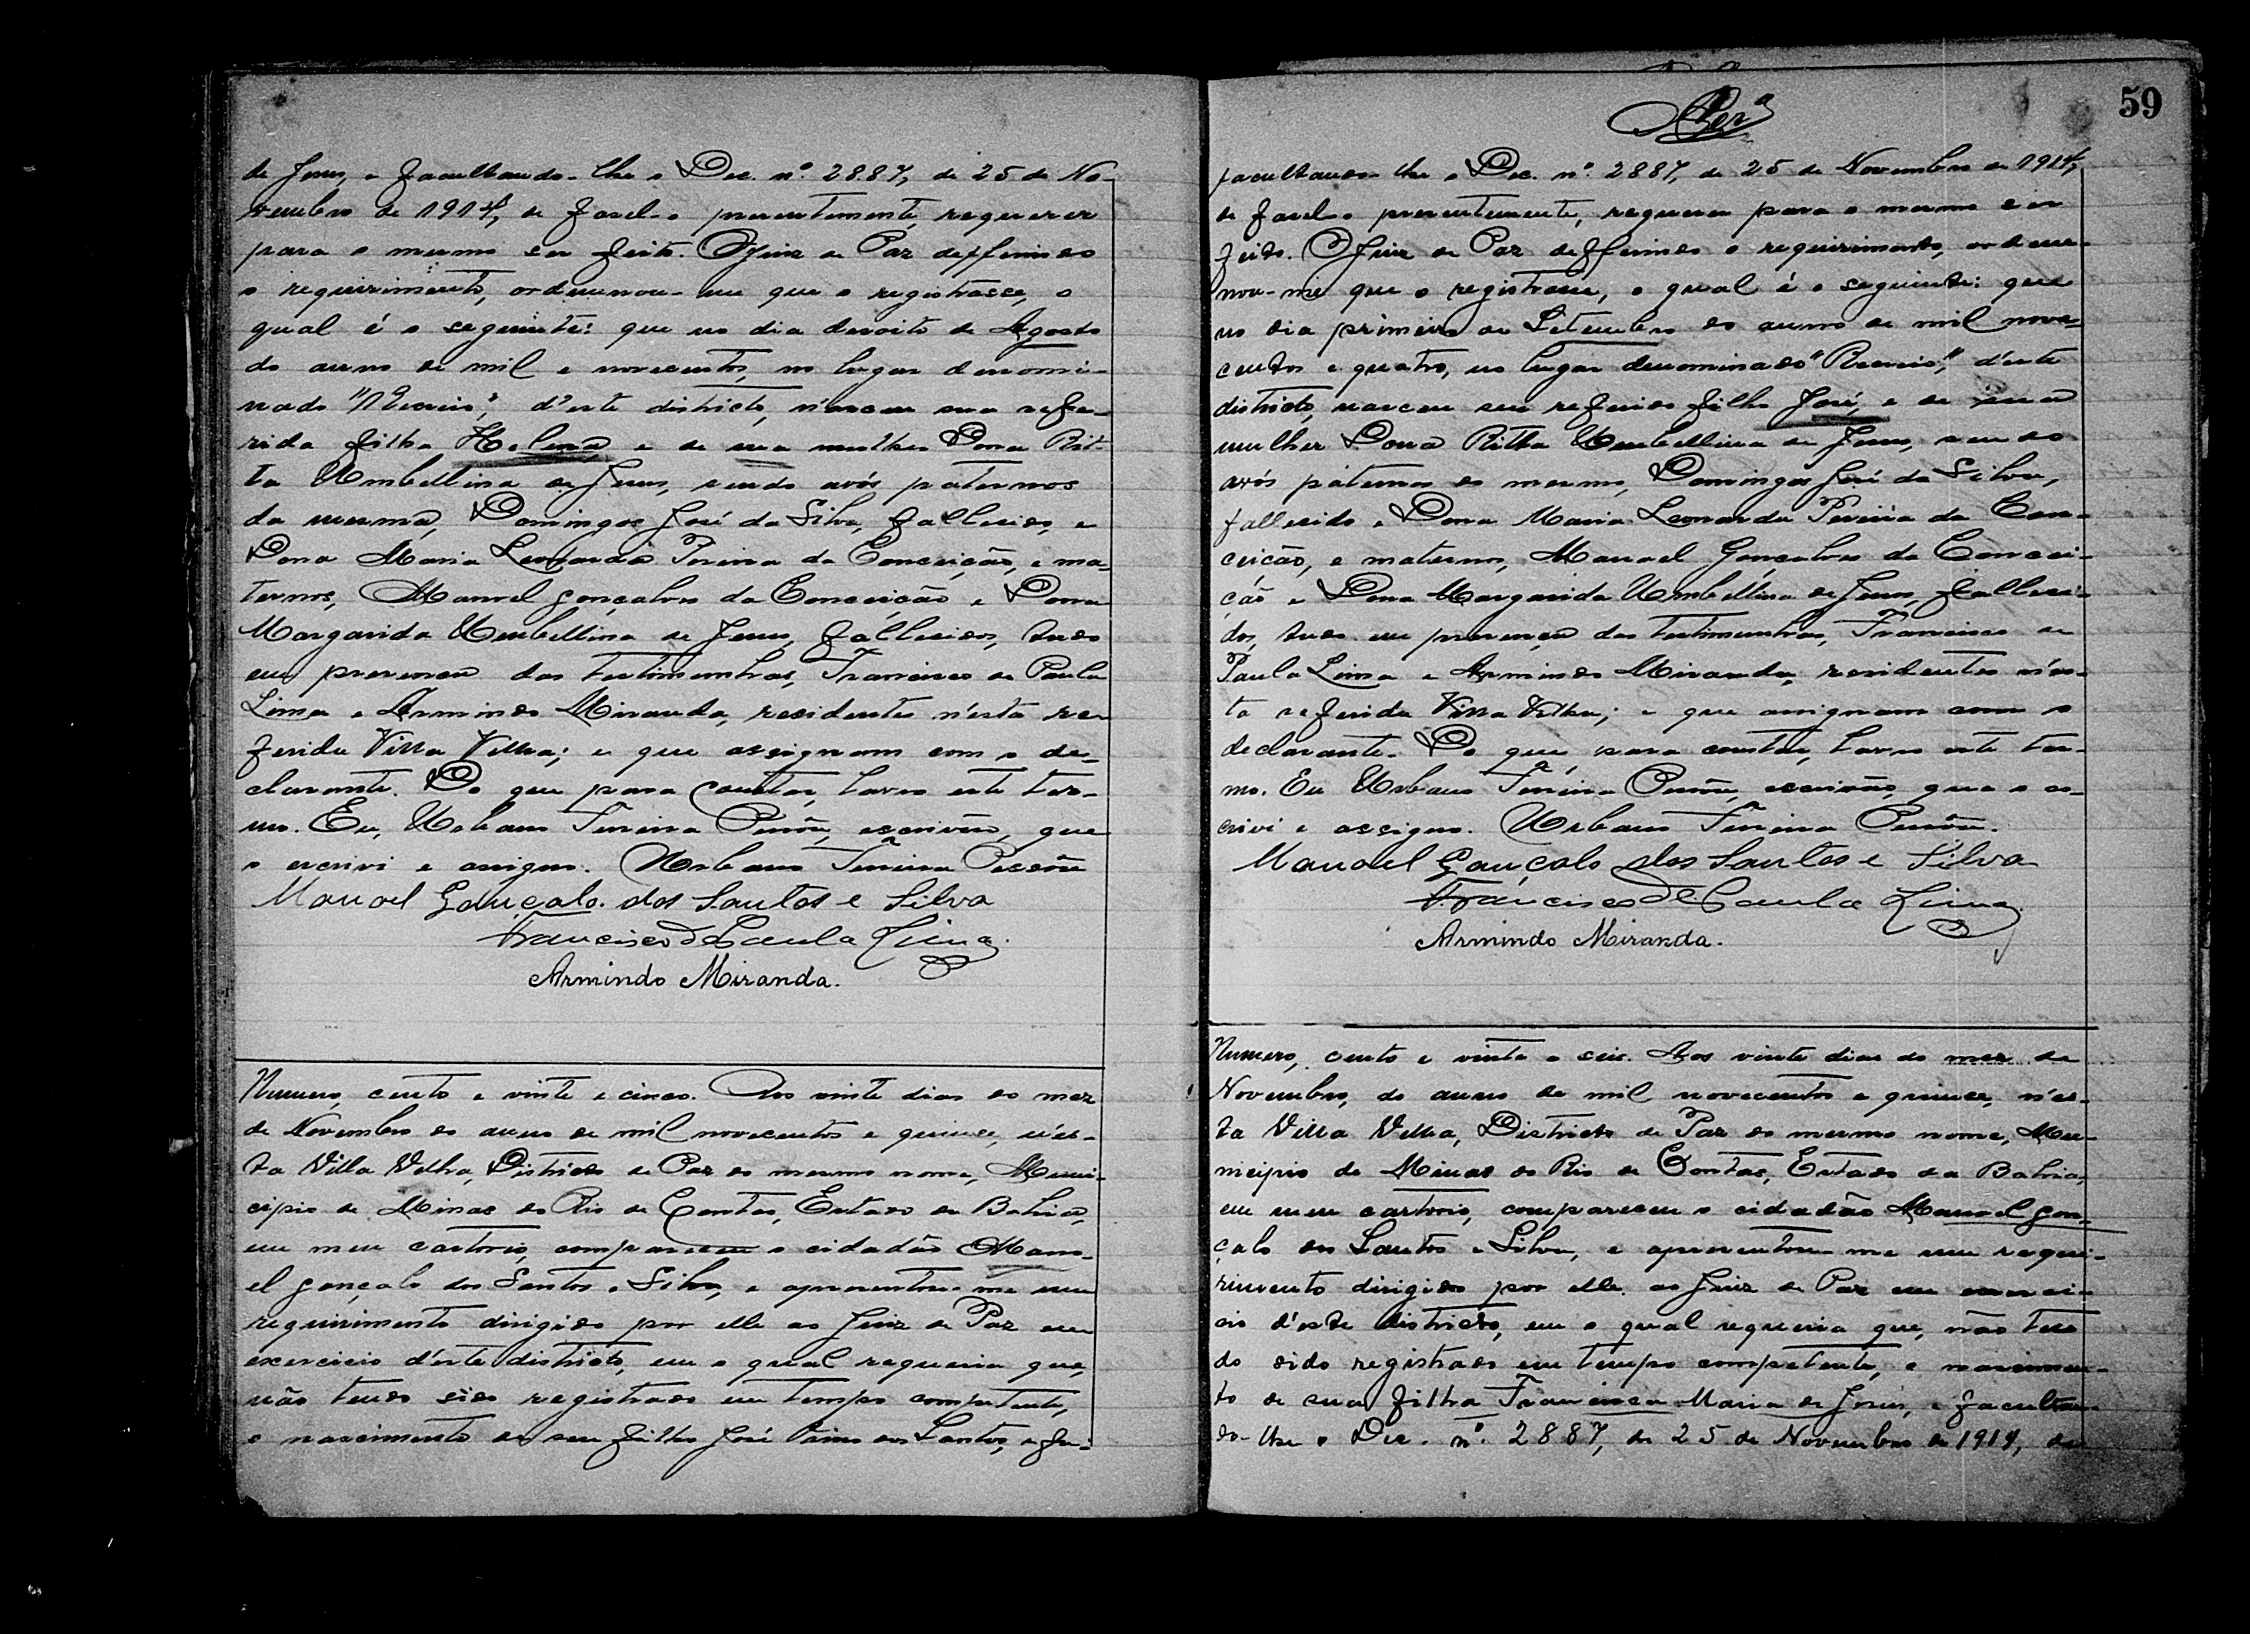 de Jesus, e facultando-lhe o Dec. nº. 2887, de 25 de No-
vembro de 1914, de fasel-o presentemente, requerer
para o mesmo ser feito. O Juiz de Paz defferindo
o requirimento, ordennou-me que o registrasse, o
qual é o seguinte: que no dia desoito de Agosto
do anno de mil e novecentos, no lugar denomi-
nado "Recreio", d'este districto, nasceu sua refe-
rida filha Helena e de sua mulher Dona Rit-
ta Umbellina de Jesus, sendo avós paternos
da mesma, Domingos José da Silva, fallecido, e
Dona Maria Leonarda Pereira da Conceição, e ma-
ternos, Manoel Gonçalves da Conceição e Dona
Margarida Umbellina de Jesus, fallecidos, tudo
em presença das testimunhas, Francisco de Paula
Lima e Armindo Miranda, residentes n'esta re-
ferida Villa Velha; e que assignam com o de-
clarante. Do que para constar, lavro este ter-
mo. Eu, Urbano Pereira, escrivão, que
o escrivi e assigno. Urbano Pereira
Manoel Gonçalo dos Santos e Silva
Francisco de Paula Lima
Armindo Miranda.
Numero, cento e vinte e cinco. Aos vinte dias do mez
de Novembro do anno de mil novecentos e quinze, n'es-
ta Villa Velha, Districto de Paz do mesmo nome, Muni-
cipio de Minas do Rio de Contas, Estado da Bahia,
em meu cartorio, compareceu o cidadão Mano-
el Gonçalo dos Santos e Silva, e apresentou-me um
requirimento dirigido por elle ao Juiz de Paz em
exercicio d'este districto, em o qual requeria que,
não tendo sido registrado em tempo competente,
o nascimento de seu filho José dos Santos, e fa-
59
facultando-lhe o Dec. nº. 2887, de 25 de Novembro de 1914,
de fasel-o presentemente, requerer para o mesmo ser
feito. O Juiz de Paz defferindo o requirimento, orden-
nou-me que o registrasse, o qual é o seguinte: que
no dia primeiro de Setembro do anno de mil nove-
centos e quatro, no lugar denominado "Recreio", d'este
districto, nasceu seu referido filho José, e de sua
mulher Dona Ritta Umbellina de Jesus, sendo
avós paternos do mesmo, Domingos José da Silva,
fallecido e Dona Maria Leonarda Pereira da Con-
ceição, e maternos, Manoel Gonçalves da Concei-
ção e Dona Margarida Umbellina de Jesus, falleci-
dos, tudo em presença das testimunhas, Francisco de
Paula Lima e Armindo Miranda, residentes n'es-
ta referida Villa Velha; e que assignam com o
declarante. Do que, para constar, lavro este ter-
mo. Eu Urbano Pereira, escrivão, que o es-
crivi e assigno. Urbano Pereira
Manoel Gonçalo dos Santos e Silva
Francisco de Paula Lima
Armindo Miranda.
Numero, cento e vinte e seis. Aos vinte dias do mez de
Novembro, do anno de mil novecentos e quinze, n'es-
ta Villa Velha, Districto de Paz do mesmo nome, Mu-
nicipio de Minas do Rio de Contas, Estado da Bahia,
em meu cartorio, compareceu o cidadão Manoel Gon-
çalo dos Santos e Silva, e apresentou-me um requi-
rimento dirigido por elle ao Juiz de Paz em exerci-
cio d'este districto, em o qual requeria que, não ten-
do sido registrado em tempo competente, o nascimen-
to de sua filha Francisca Maria de Jesus, e facultan-
do-lhe o Dec. nº. 2887, de 25 de Novembro de 1914, de